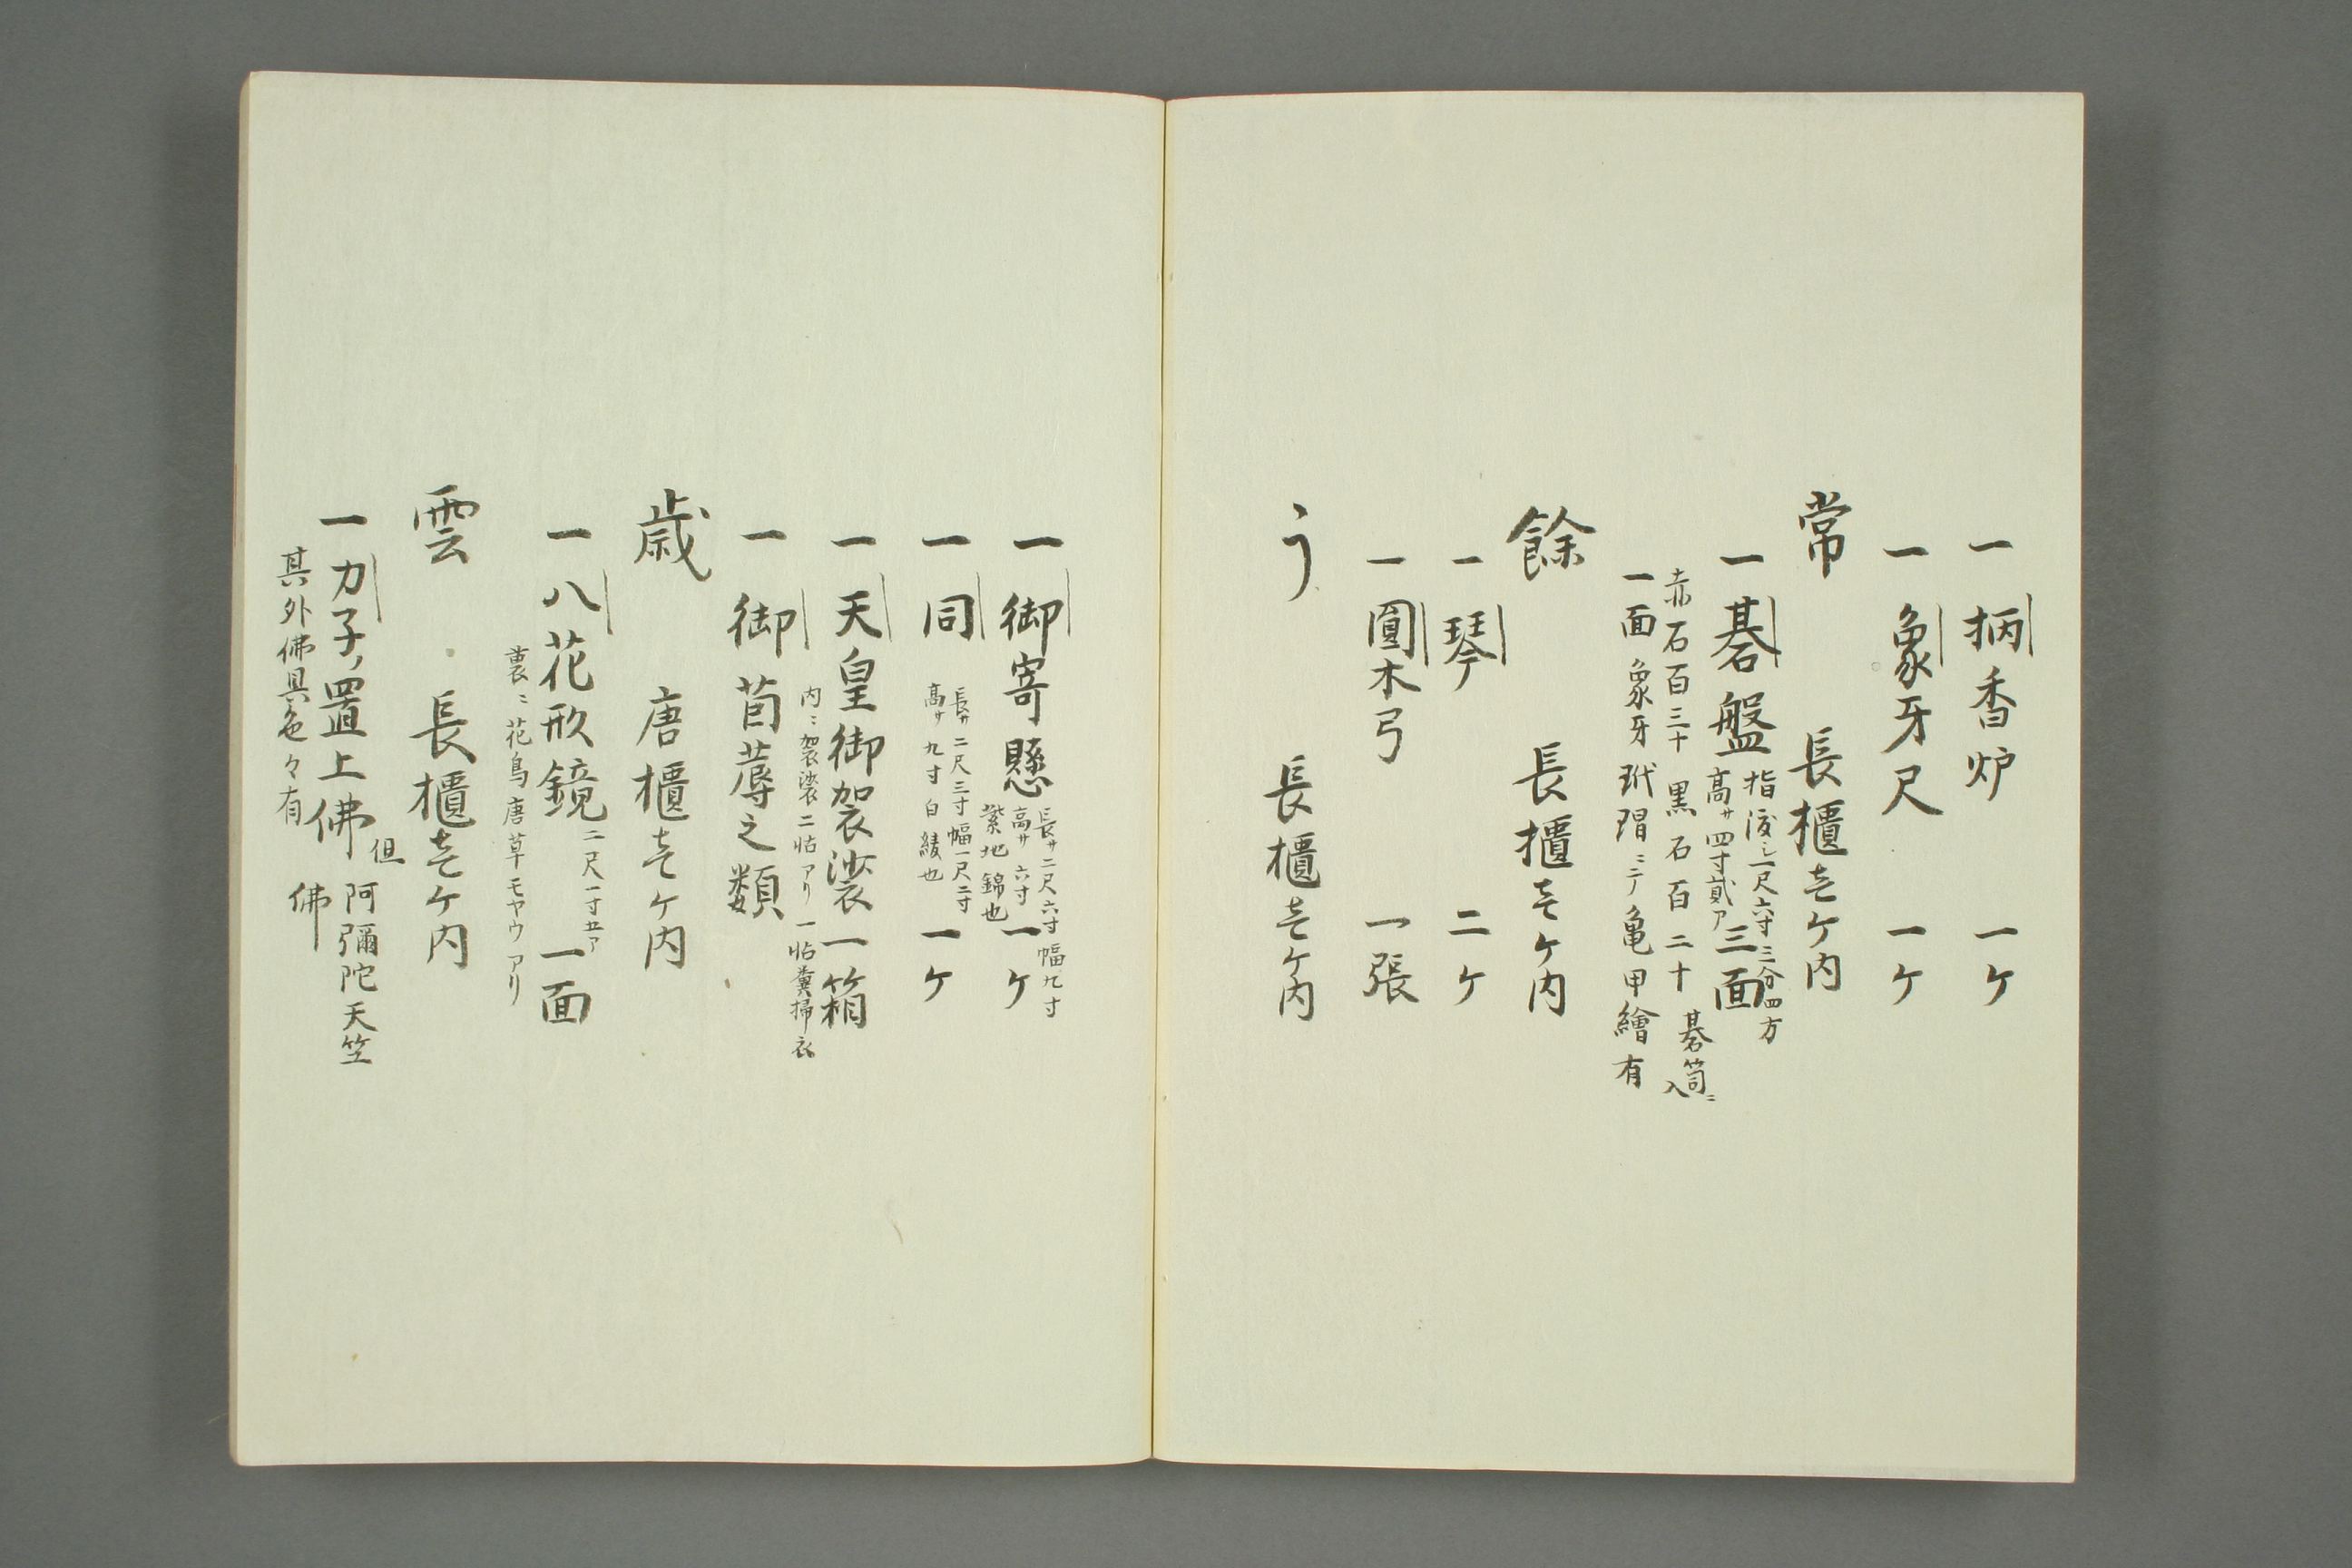 一柄香炉 一ケ
一象牙尺 一ケ
常 長櫃壱ケ内
一碁盤 指渡シ一尺六寸三分四方 高サ四寸貳ア 三面
赤石百三十 黒石百二十 碁筒ニ入
一面象牙玳瑁ニテ亀甲繪有
餘 長櫃壱ケ内
一琴 二ケ
一圓木弓 一張
う 長櫃壱ケ内
一御寄懸 長サ二尺六寸幅九寸 高サ六寸 紫地錦也 一ケ
一同 長サ二尺三寸幅一尺二寸 高サ九寸白綾也 一ケ
一天皇御袈裟 一箱
内ニ袈裟二帖アリ一帖糞掃衣
一御茵蓐之類
歳 唐櫃壱ケ内
一八花形鏡 二尺一寸五ア 一面
裏ニ花鳥唐草モヤウアリ
雲 長櫃壱ケ内
一力子ノ置上佛 但阿彌陀天竺佛
其外佛具色々有